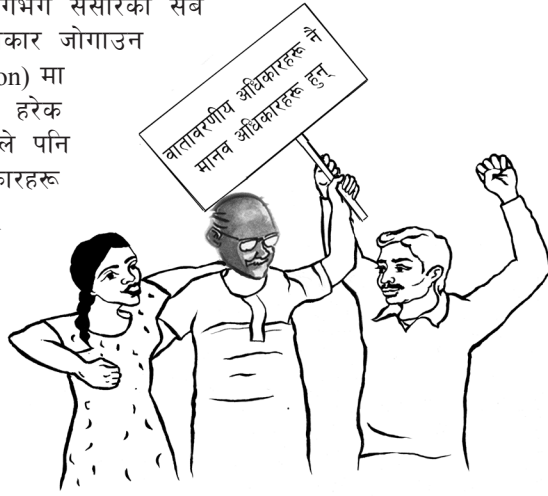 संसारका सबै
जोगाउन
on) मा
हरेक
ले पनि
कारहरू
वातावरणीय अधिकारहरू नै
मानव अधिकारहरू हुन्